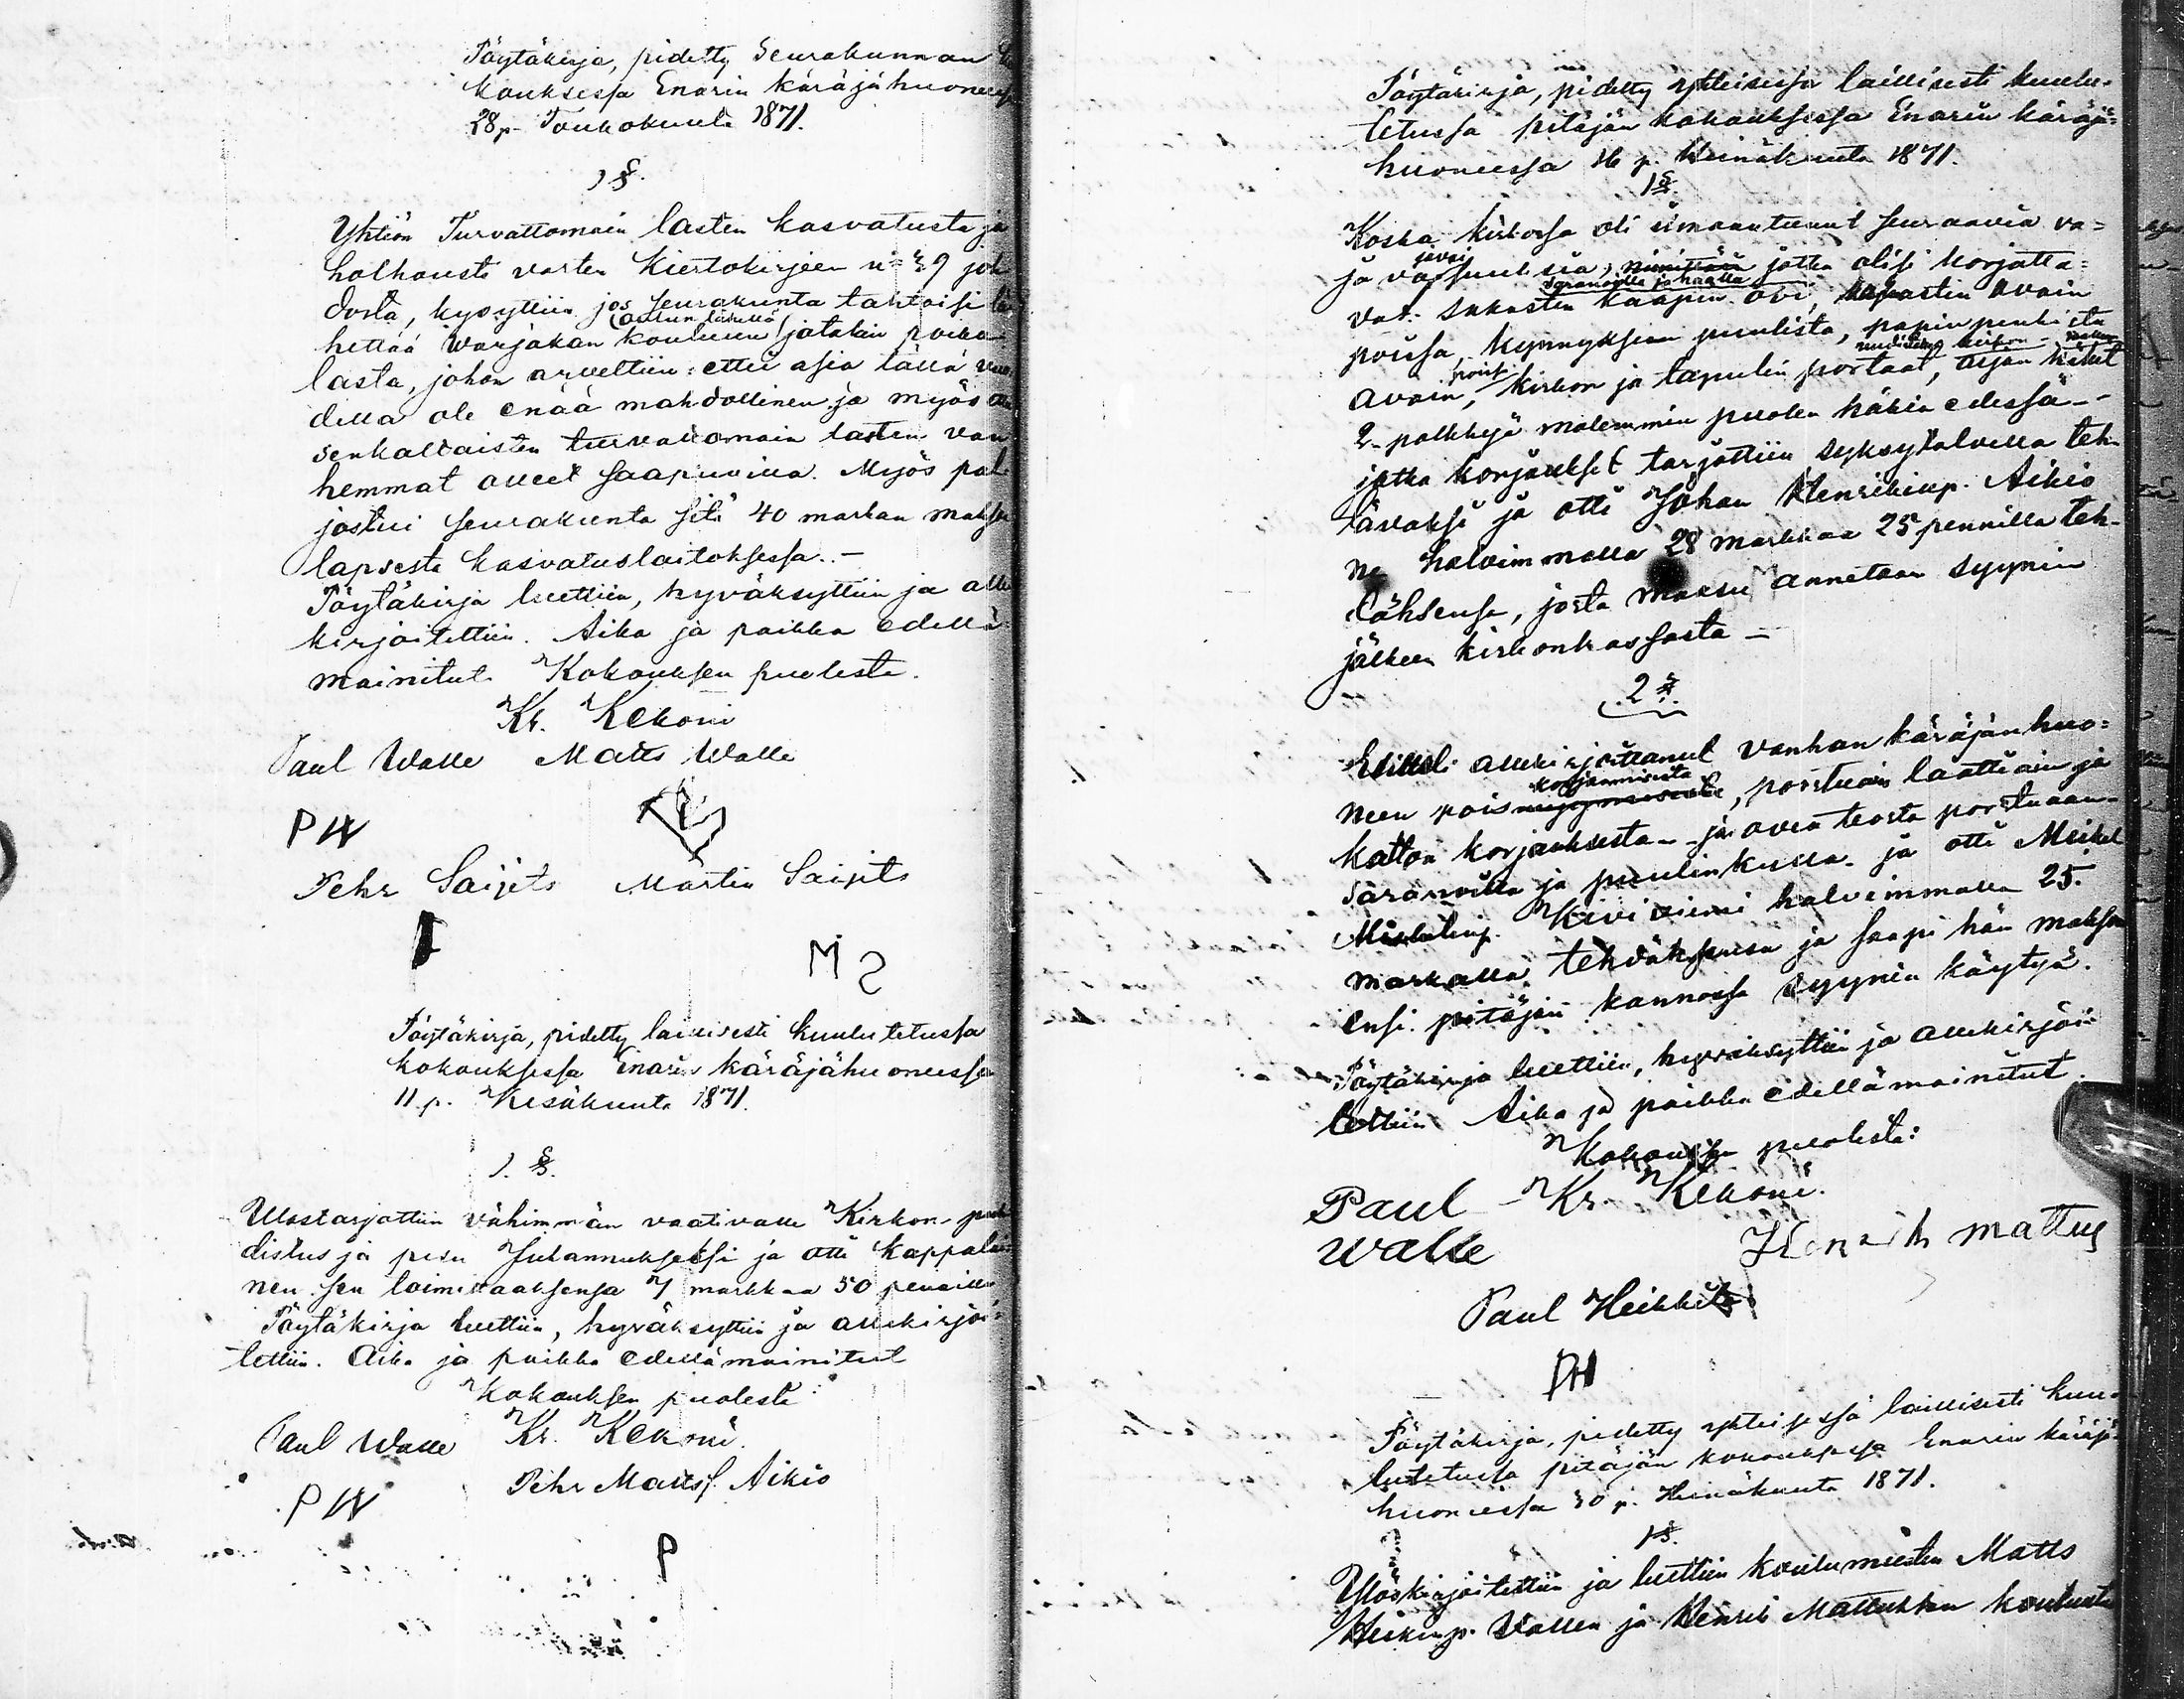 Pöytäkirja, pidetty Seurakunnan
kouksessa Enarin käräjähuoneessa
28 p. Toukokuuta 1871.
1 §.
Yhtiön Turvattomain lasten kasvatusta ja
holhousta varten Kiertokirjeen n:o 39 joh
dosta, kysyttiin jos seurakunta tahtoisi lä
hettää Warjakan kouluun jotakin poika
lasta, johon arveltiin: ettei asia tällä vuo
della ole enää mahdollinen ja myös
senkaltaisten turvattomain lasten van
hemmat olleet saapuvilla. Myös pal
jostui seurakunta sitä 40 markan maksu
lapsesta kasvatuslaitoksessa. –
Pöytäkirja luettiin, hyväksyttiin ja alle
kirjoitettiin. Aika ja paikka edellä
mainitut. Kokouksen puolesta.
Kr. Kekoni
Paul Walle Matts Walle
PW
Pehr Saijets Martin Saijets
M S
Pöytäkirja, pidetty laillisesti kuulutetussa
kokouksessa Enarin käräjähuoneessa
11 p. Kesäkuuta 1871.
1. §.
Ulostarjottiin vähimmän vaativalle Kirkon- puh
distus ja pesu Juhannukseksi ja otti Kappalai
nen sen toimittaaksensa 7 markkaa 50 pennillä
Pöytäkirja luettiin, hyväksyttiin ja allekirjoi-
tettiin. Aika ja paikka edellämainitut
Kokouksen puolesta:
Paul Walle Kr. Kekoni.
PW Pehr Matts f. Aikio
P
Pöytäkirja, pidetty yhteisessä laillisesti kuulu-
tetussa pitäjän kokouksessa Enarin käräjä-
huoneessa 16 p. Heinäkuuta 1871.
1 §.
Koska kirkossa oli ilmaantunut seuraavia va-
javaisuuksia, jotka olisi korjatta-
saranoilla ja haalla
vat: sakastin kaapin ovi, avain
poissa, kymnyksien puulista, papin penkistä
avain, poissa, kirkon ja tapulin portaat,
2 palkkeja molemmin puolen häkin edessä –
jotka korjaukset tarjottiin syksytalvella teh-
täväksi ja otti Johan Henrikinp. Aikio
ne halvimmalla 28 markkaa 25 pennillä teh-
däksensä, josta maksu annetaan syynin
jälkeen kirkonkassasta –
2 §.
Edelli allekirjoittanut vanhan käräjänhuo-
korjaamisesta
neen pois, porstuan laattiain ja
katon korjauksesta – ja oven teosta porstuaan
saranoilla ja puulinkulla ja otti Mickel
Mickelinp. Kiviniemi halvimmalla 25.
markalla tehdäksensä ja saapi hän maksun
ensi pitäjän kannossa syynin käytyä.
Pöytäkirja luettiin, hyväksyttiin ja allekirjoi-
tettiin Aika ja paikka edellämainitut.
Kokouksen puolesta:
Paul Kr. Kekoni.
Walle Henrik mattus
Paul Heikkilä
PH
Pöytäkirja, pidetty yhteisessä laillisesti kuu-
lutetussa pitäjän kokouksessa Enarin käräjä-
huoneessa 30 p. Heinäkuuta 1871.
1 §.
Ylöskirjoitettiin ja luettiin koulumiesten Matts
Heikinp. Wallen ja Henrik Mattuksen koulusta